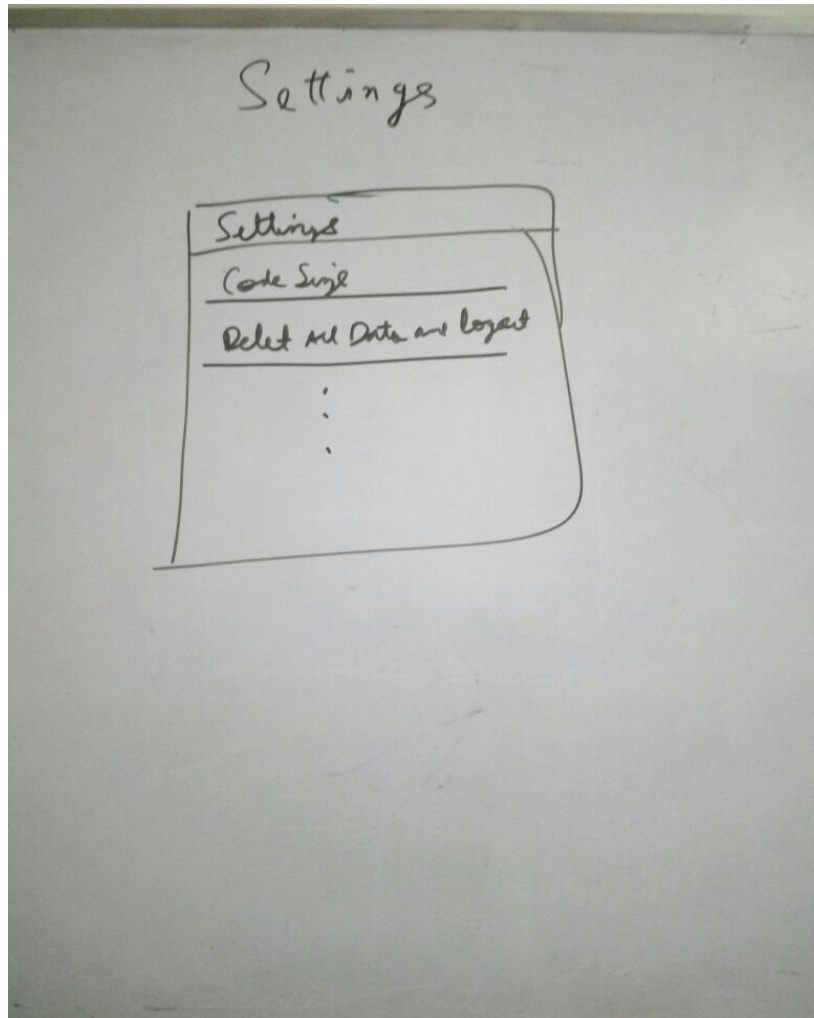 Settings
Settings
Code Size
Delet All Data and logout
⋮